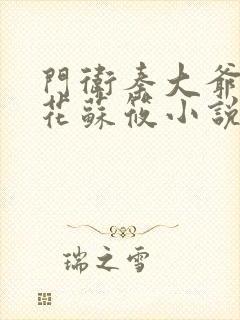 門衛秦大爺
花蘇筱小說
瑞之雪